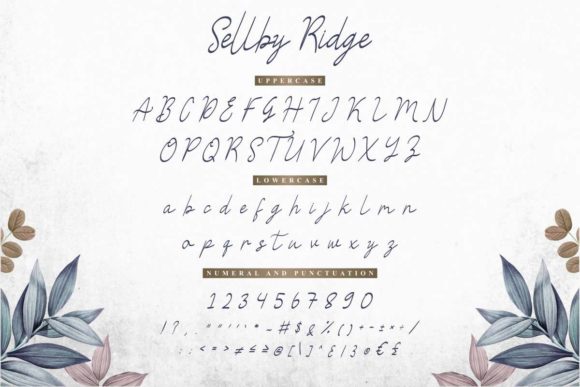 Sellby Ridge
UPPERCASE
ABCDEFGHIJKLMN
OPQRSTUVWXYZ
LOWERCASE
a b c d e f g h i j k l m n
o p q r s t u v w x y z
NUMERAL AND PUNCTUATION
1 2 3 4 5 6 7 8 9 0